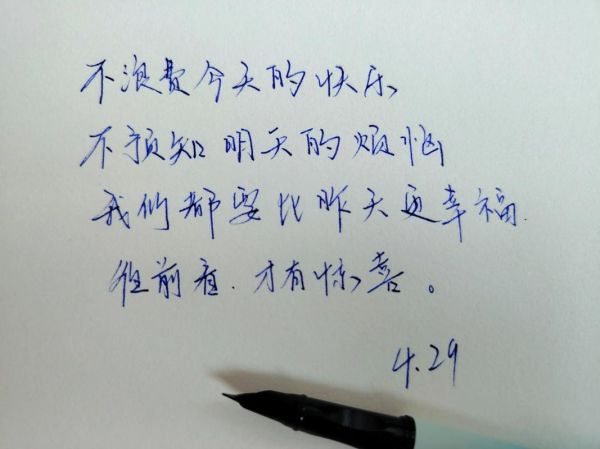 不浪费今天的快乐
不预知明天的烦恼
我们都要比昨天更幸福.
往前看.才有惊喜。
4.29